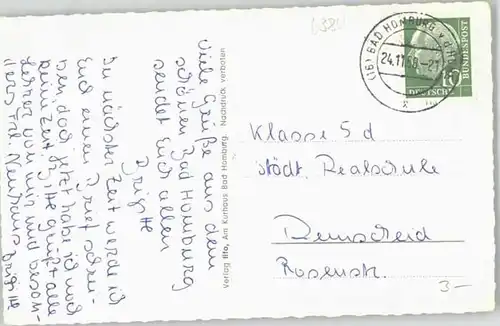 Viele Grüße aus dem
schönen Bad Homburg
sendet Euch allen
Brigitte
In nächster Zeit werde ich
Euch einen Brief schrei-
ben doch jetzt habe ich noch
keine Zeit. Bitte grüßt alle
Lehrer von mir und beson-
ders Frl. Neuhaus Brigitte
Verlag Ifo, Am Kurhaus Bad Homburg. Nachdruck verboten
(16) BAD HOMBURG v d
24.11.58.-21
10
DEUTSCHE
BUNDESPOST
Klasse 5d
städt. Realschule
Remscheid
Rosenstr.
3-